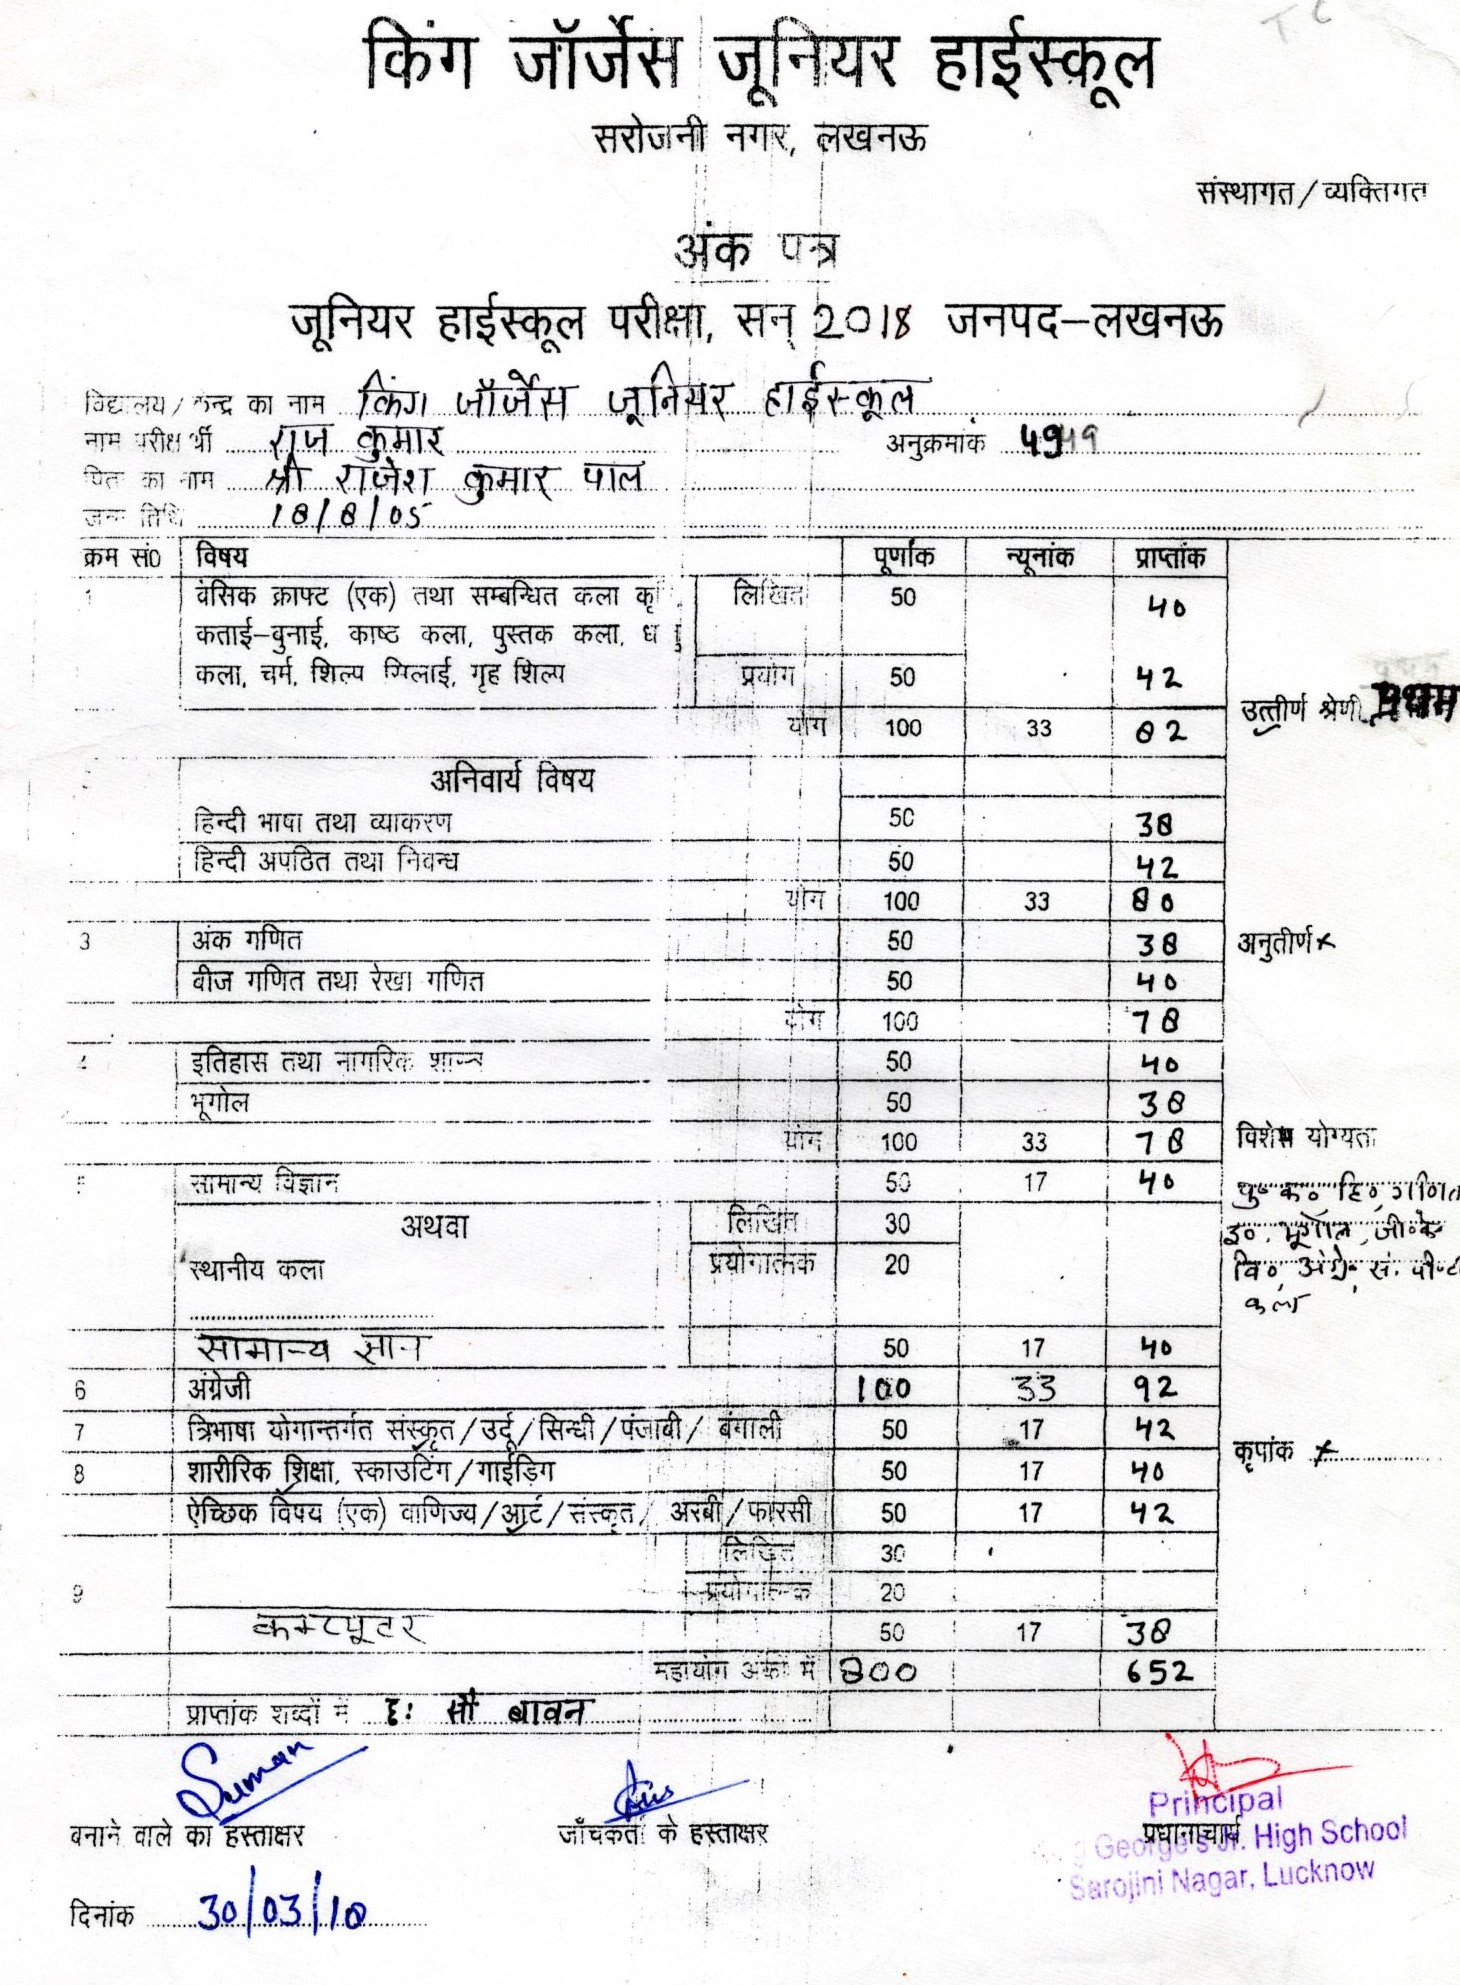 किंग जॉर्जेस जूनियर हाईस्कूल
सरोजनी नगर, लखनऊ
संस्थागत/व्यक्तिगत
अंक पत्र
जूनियर हाईस्कूल परीक्षा, सन् 2018 जनपद-लखनऊ
विद्यालय/केन्द्र का नाम किंग जॉर्जेस जूनियर हाईस्कूल
नाम परीक्षार्थी राज कुमार अनुक्रमांक
पिता का नाम श्री राजेश कुमार पाल
जन्म तिथि 18/8/05
क्रम सं0 विषय पूर्णांक न्यूनांक प्राप्तांक
1 वेसिक क्राफ्ट (एक) तथा सम्बन्धित कला लिखित 50 40
कताई-बुनाई, काष्ठ कला, पुस्तक कला,
कला, चर्म, शिल्प सिलाई, गृह शिल्प प्रयोग 50 42
उत्तीर्ण श्रेणी प्रथम
योग 100 33 82
अनिवार्य विषय
हिन्दी भाषा तथा व्याकरण 50 38
हिन्दी अपठित तथा निवन्ध 50 42
योग 100 33 80
3 अंक गणित 50 38 अनुतीर्ण ×
वीज गणित तथा रेखा गणित 50 40
योग 100 78
4 इतिहास तथा नागरिक शास्त्र 50 40
भूगोल 50 38
योग 100 33 78 विशेष योग्यता
सामान्य विज्ञान 50 17 40 पु० क० हि० गणित
अथवा लिखित 30 इ०, भूगोल, जी०के
स्थानीय कला प्रयोगात्मक 20 वि०, अंग्रे०, सं.
कला
सामान्य ज्ञान 50 17 40
6 अंग्रेजी 100 33 92
7 त्रिभाषा योगान्तर्गत संस्कृत/उर्दू/सिन्धी/पंजाबी/ बंगाली 50 17 42
कृपांक ×
8 शारीरिक शिक्षा, स्काउटिंग/गाईडिंग 50 17 40
ऐच्छिक विषय (एक) वाणिज्य/आर्ट/संस्कृत/ अरबी/फारसी 50 17 42
लिखित 30
9 प्रयोगात्मक 20
कम्प्यूटर 50 17 38
महायोग अंकों में 800 652
प्राप्तांक शब्दों में छः सौ बावन
Suman
Principal
बनाने वाले का हस्ताक्षर जाँचकर्ता के हस्ताक्षर प्रधानाचार्य
George's Jr. High School
Sarojini Nagar, Lucknow
दिनांक 30/03/18